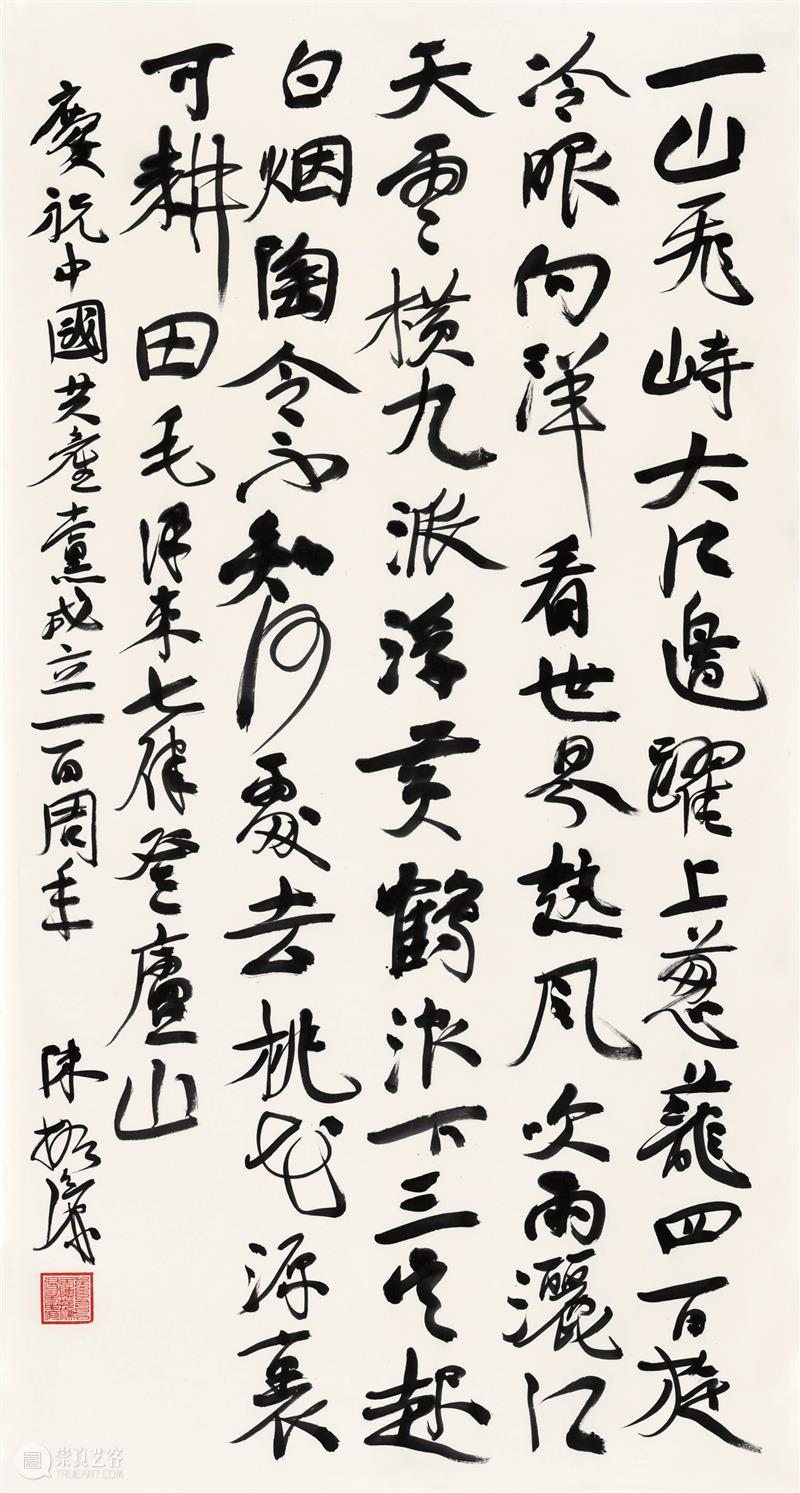 一山飛峙大江邊躍上蔥蘢四百旋
冷眼向洋看世界熱風吹雨灑江
天雲橫九派浮黃鶴浪下三吳起
白烟陶令不知何處去桃花源裏
可耕田毛澤東七律登廬山
慶祝中國共產黨成立一百周年 陳振濂
崇真艺客
TRUEART.COM